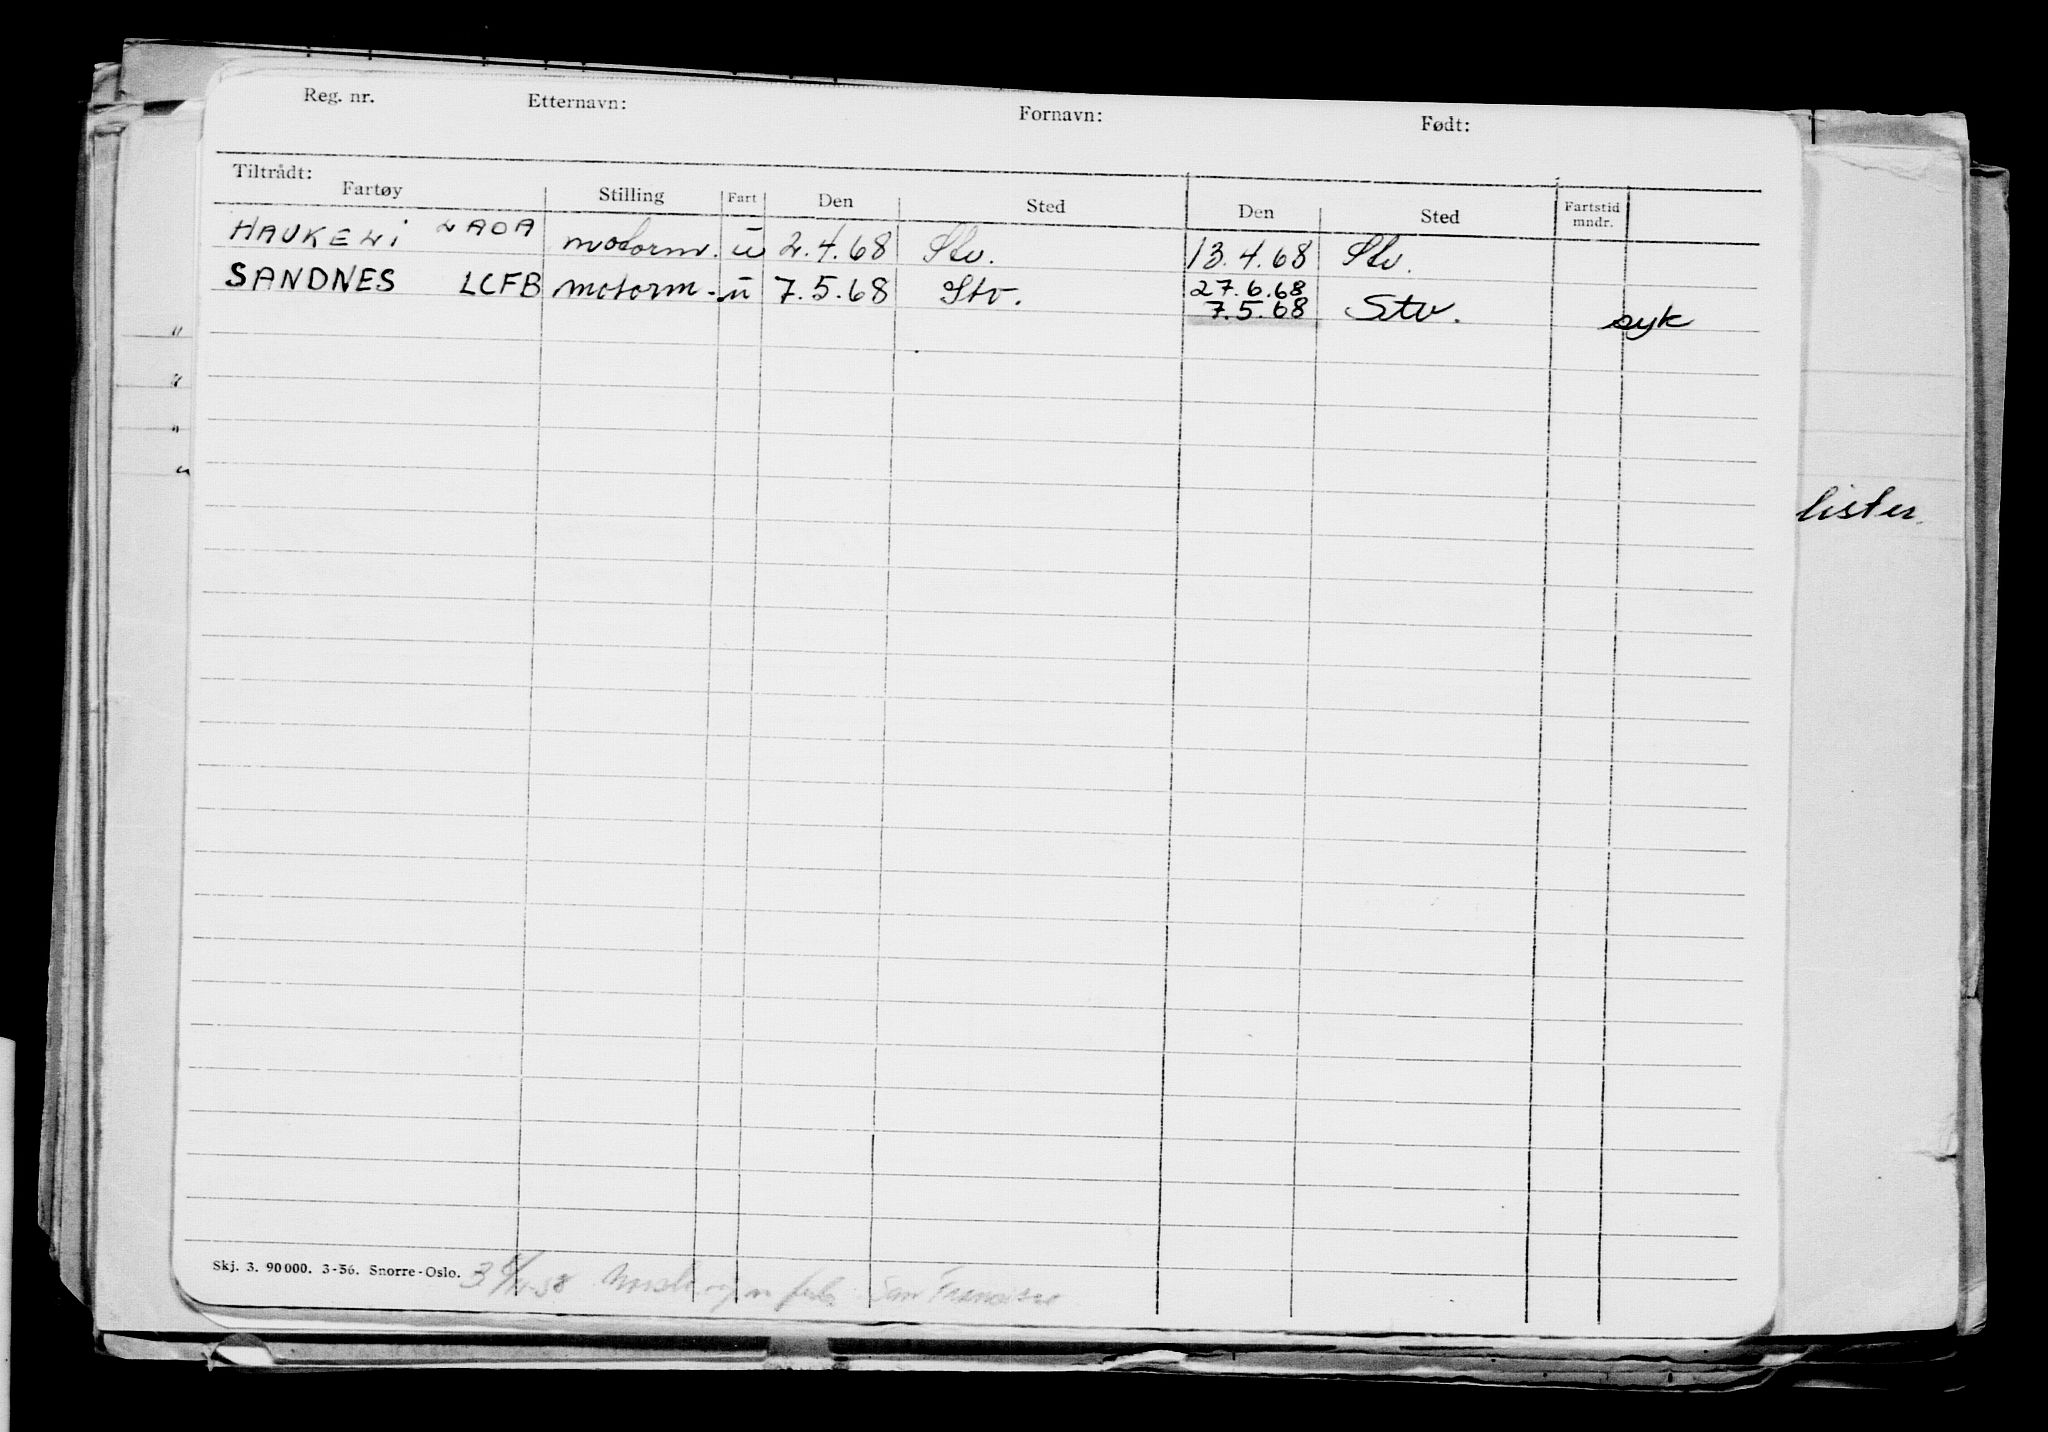 Reg. nr. Etternavn: Fornavn: Født:
Tiltrådt:
Fartøy Stilling Fart Den Sted Den Sted Fartstid mndr.
HAUKELI LAOA motorm. u 2.4.68 Stv. 13.4.68 Stv.
SANDNES LCFB motorm. u 7.5.68 Stv. 27.6.68
7.5.68 Stv. syk
lister
Skj. 3. 90000. 3-56. Snorre-Oslo. San Francisco